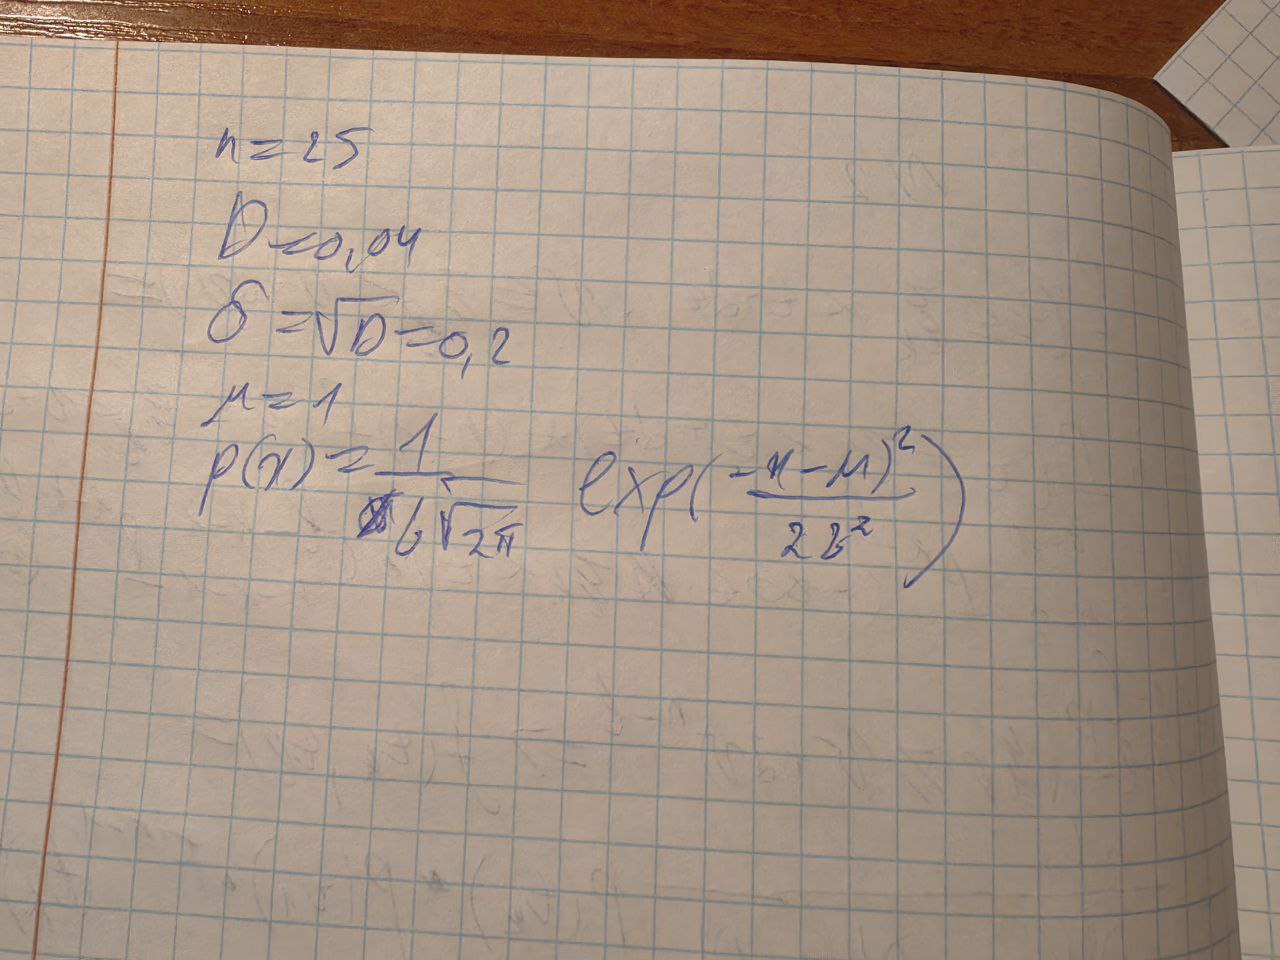 n=25
D=0,04
δ=√D=0,2
μ=1
p(x)=1/(б√2π) exp(-x-μ)²/2б²)